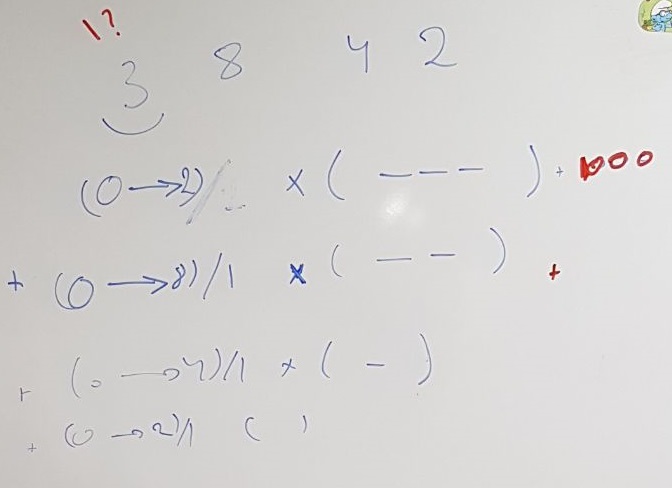 1?
3 8 4 2
(0→2)/ × ( - - - ) + 1000
+ (0→8)/1 × ( - - ) +
+ (0→4)/1 × ( - )
+ (0→2)/1 ( )